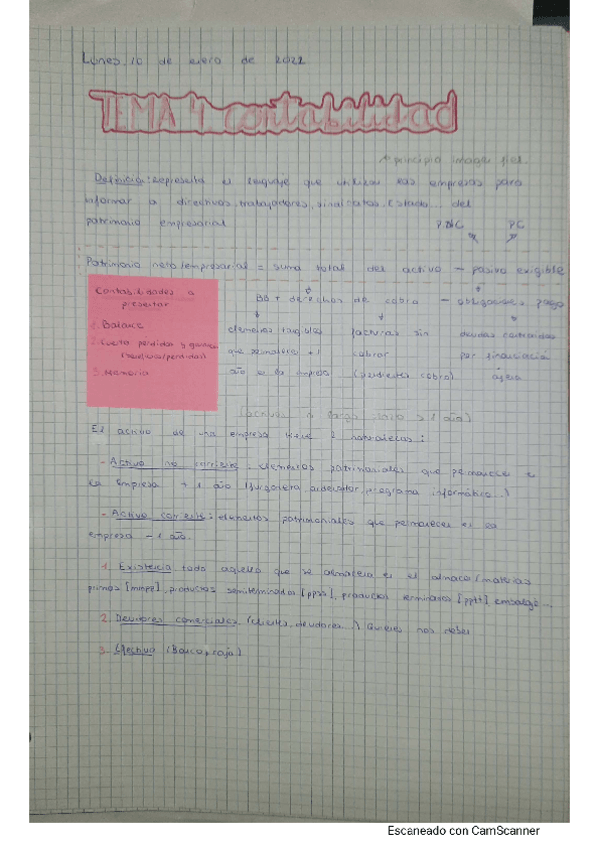 Lunes, 10 de enero de 2022
TEMA 4 contabilidad
principio imagen fiel.
Definición: representa el lenguaje que utilizan las empresas para
informar a directivos, trabajadores, sindicatos, Estado... del
patrimonio empresarial
PNC PC
Patrimonio neto/empresarial = suma total del activo – pasivo exigible
Contabilidades a
presentar
1. Balance
2. Cuenta pérdidas y ganancias
3. Memoria
BB + derechos de cobro – obligaciones pago
elementos facturas sin deudas contraídas
que permanecen +1 cobrar por financiación
año en la empresa (pendientes cobro) ajena
(activos a largo plazo > 1 año)
El activo de una empresa tiene 2 naturalezas:
- Activo no corriente: elementos patrimoniales que permanecen en
la empresa + 1 año (furgoneta, ordenador, programa informático...)
- Activo corriente: elementos patrimoniales que permanecen en la
empresa – 1 año.
1. Existencia todo aquello que se almacena en el almacén (materias
primas [mmpp], productos semiterminados [ppss], productos terminados [pptt] embalaje...
2. Deudores comerciales (clientes, deudores...) Quienes nos deben
3. Efectivo (Banco, caja)
Escaneado con CamScanner